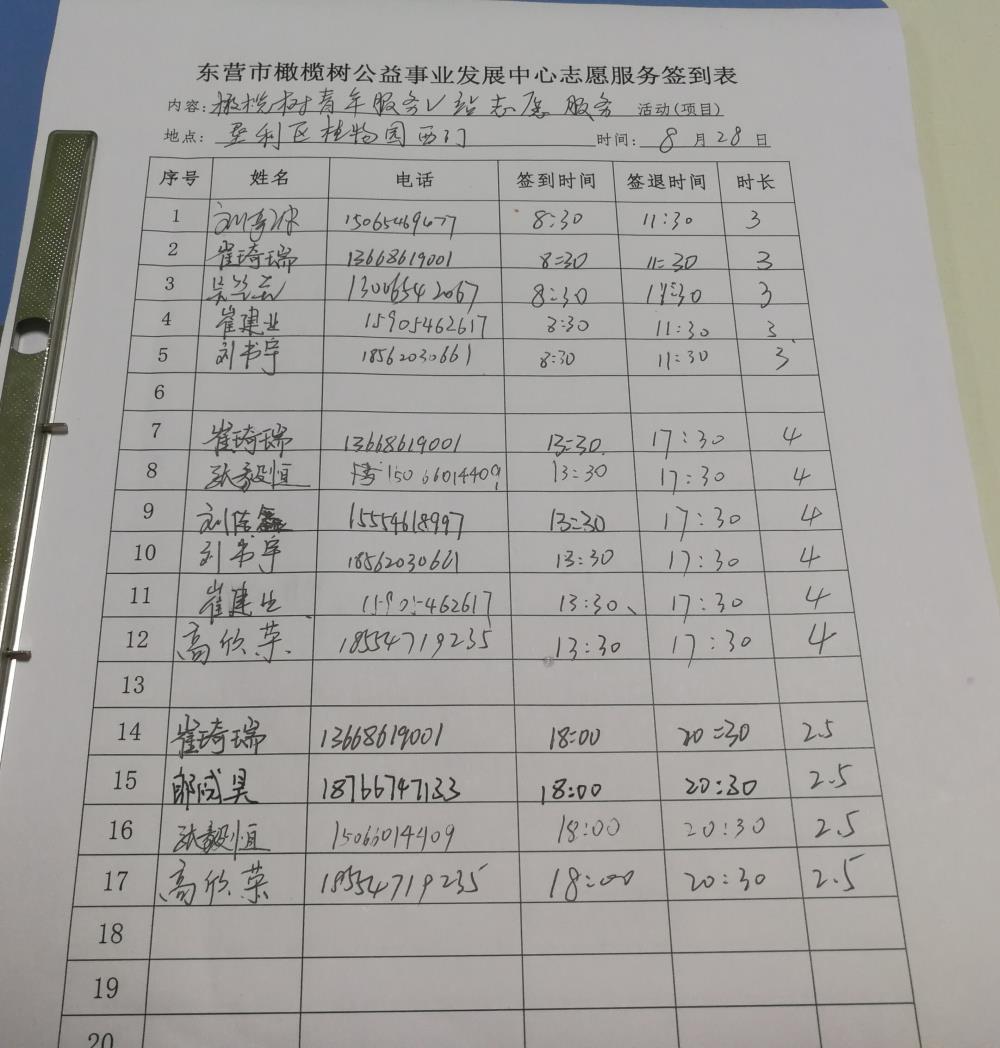 东营市橄榄树公益事业发展中心志愿服务签到表
内容: 橄榄树青年服务V站志愿服务 活动(项目)
地点: 垦利区植物园西门 时间: 8月28日
序号 姓名 电话 签到时间 签退时间 时长
1 15065469677 8:30 11:30 3
2 崔琦瑞 13668619001 8:30 11:30 3
3 13006542067 8:30 11:30 3
4 崔建业 15905462617 8:30 11:30 3
5 刘书宇 18562030661 8:30 11:30 3
6
7 崔琦瑞 13668619001 13:30 17:30 4
8 张毅恒 15066014409 13:30 17:30 4
9 15554618997 13:30 17:30 4
10 刘书宇 18562030661 13:30 17:30 4
11 崔建业 15905462617 13:30 17:30 4
12 高欣荣 18554719235 13:30 17:30 4
13
14 崔琦瑞 13668619001 18:00 20:30 2.5
15 18766747133 18:00 20:30 2.5
16 张毅恒 15066014409 18:00 20:30 2.5
17 高欣荣 18554719235 18:00 20:30 2.5
18
19
20